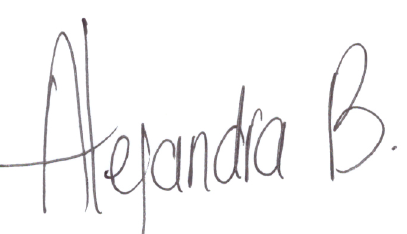 Alejandra B.